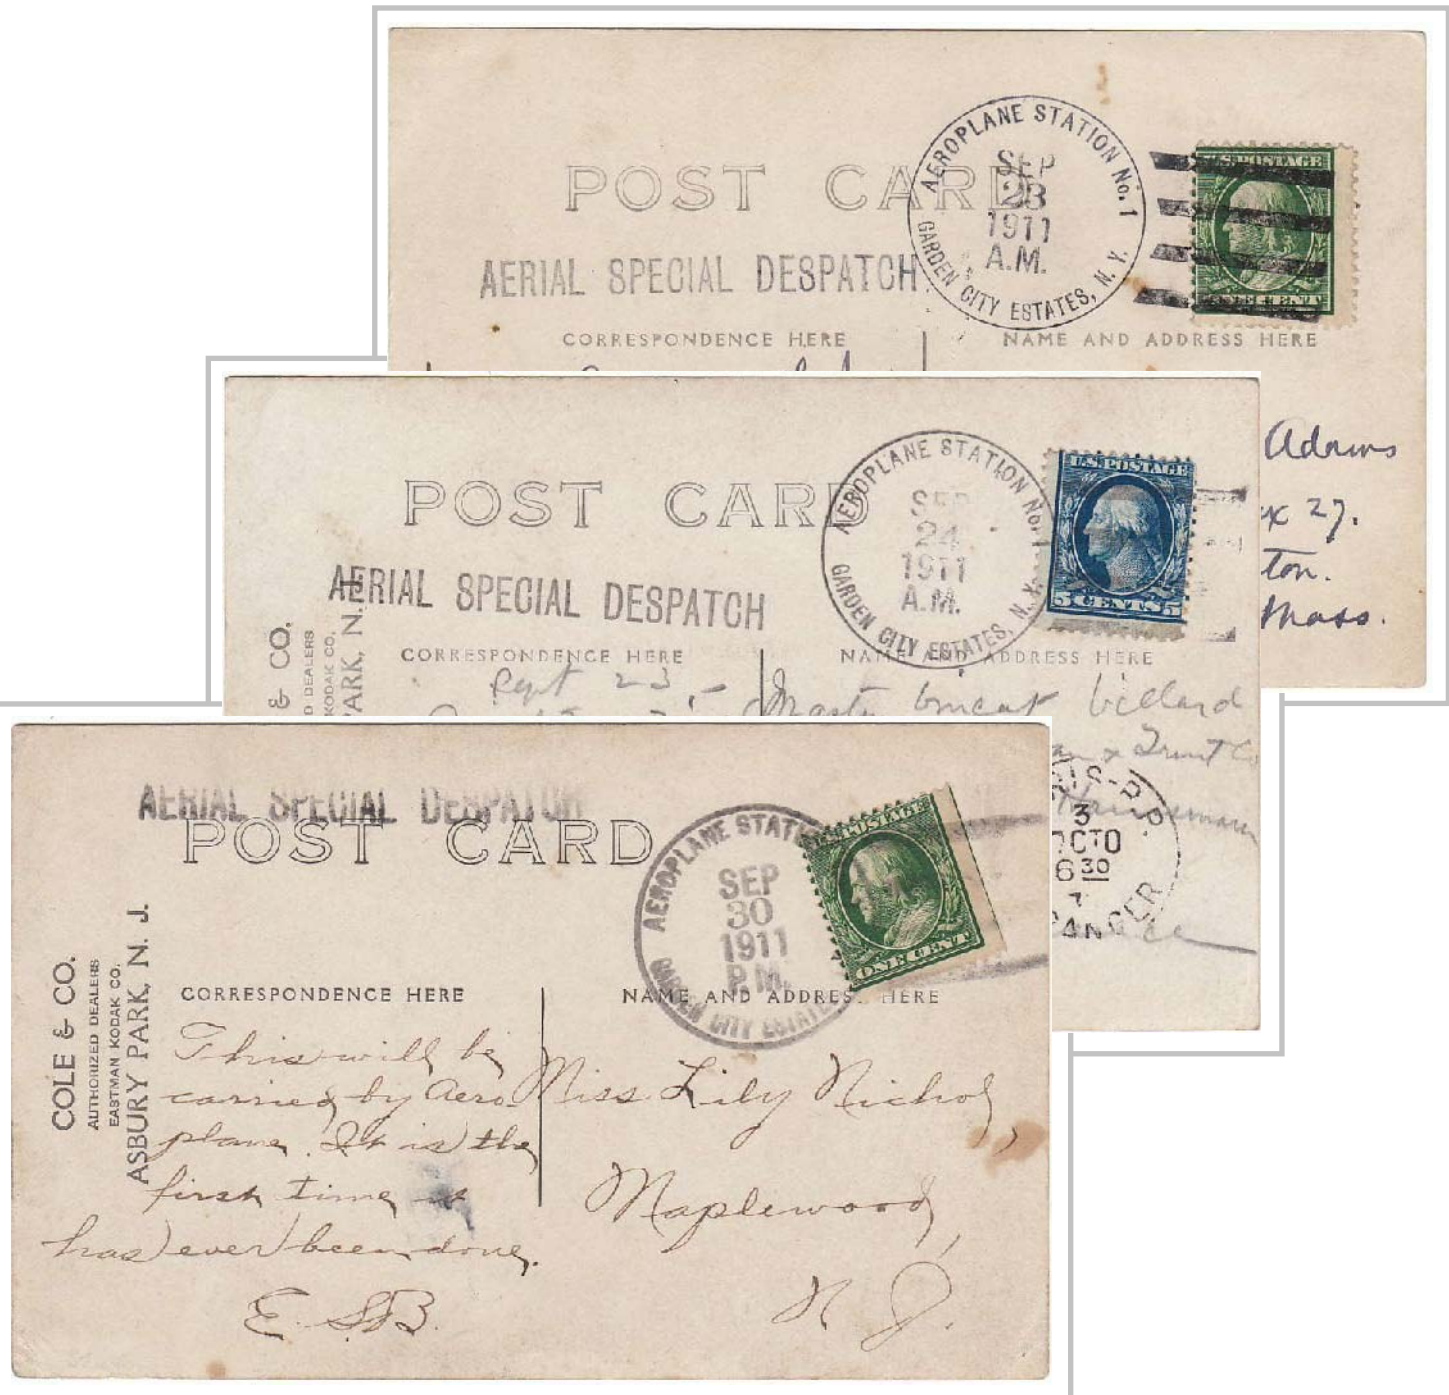 POST CARD
AEROPLANE STATION No. 1
SEP
23
1911
A.M.
GARDEN CITY ESTATES, N. Y.
U.S. POSTAGE
ONE CENT
AERIAL SPECIAL DESPATCH
CORRESPONDENCE HERE
NAME AND ADDRESS HERE
Adams
27.
ton.
Mass.
POST CARD
AEROPLANE STATION No. 1
SEP
24
1911
A.M.
GARDEN CITY ESTATES, N. Y.
U.S. POSTAGE
5 CENTS 5
AERIAL SPECIAL DESPATCH
& CO.
D DEALERS
KODAK CO.
PARK, N. J.
CORRESPONDENCE HERE
NAME AND ADDRESS HERE
Sept 23
Villard
Trust Co
3
OCTO
6 30
AERIAL SPECIAL DESPATCH
POST CARD
AEROPLANE STATI
SEP
30
1911
P.M.
GARDEN CITY ESTATE
U.S. POSTAGE
ONE CENT
COLE & CO.
AUTHORIZED DEALERS
EASTMAN KODAK CO.
ASBURY PARK, N. J.
CORRESPONDENCE HERE
NAME AND ADDRESS HERE
This will be
carried by Aero
plane. It is the
first time it
has ever been done.
E. S. B.
Miss Lily Nichols,
Maplewood,
N. J.